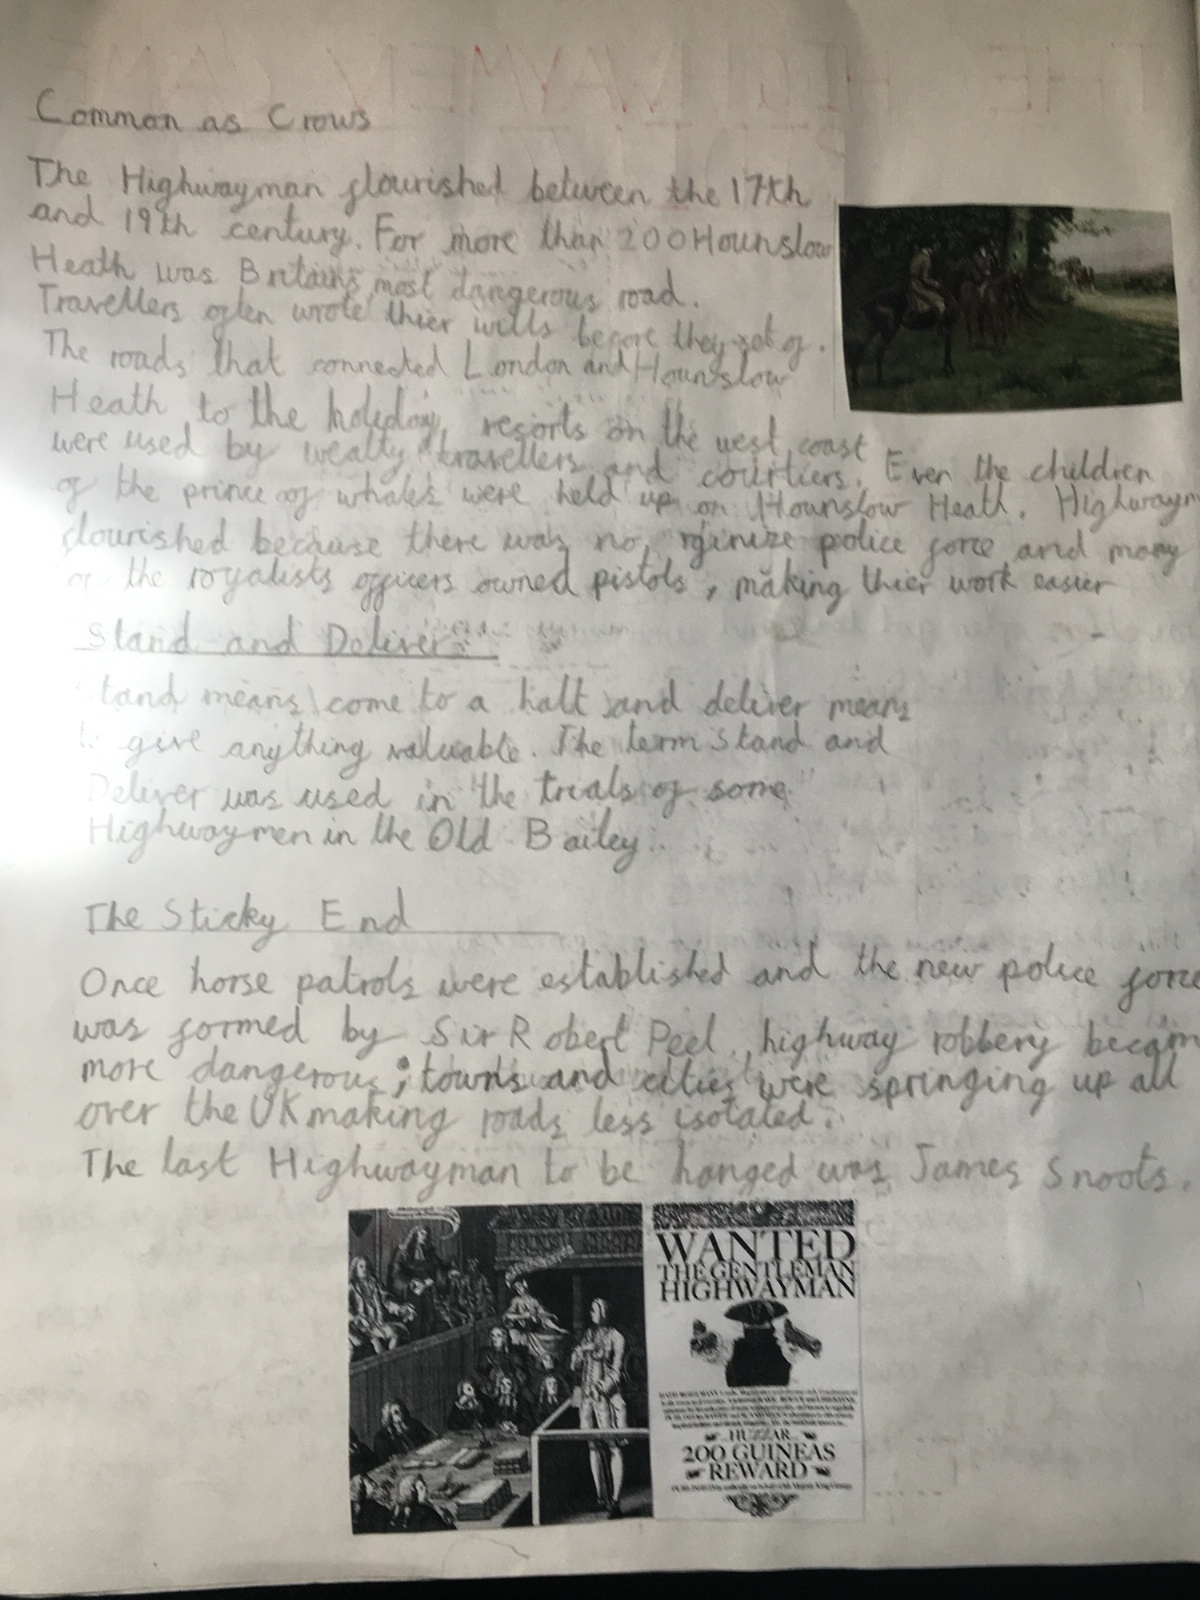 Common as Crows
The Highwayman flourished between the 17th
and 19th century. For more than 200 Hounslow
Heath was Britains most dangerous road.
Travellers often wrote thier wills before they set of.
The roads that connected London and Hounslow
Heath to the holiday resorts on the west coast
were used by wealty travellers and courtiers. Even the children
of the prince of whales were held up on Hounslow Heath. Highwaym
flourished because there was no rginize police force and many
of the royalists officers owned pistols, making thier work easier
Stand and Deliver
tand means come to a halt and deliver means
to give anything valuable. The term Stand and
Deliver was used in the trials of some
Highwaymen in the Old Bailey.
The Sticky End
Once horse patrols were established and the new police force
was formed by Sir Robert Peel, highway robbery becam
more dangerous; towns and cities were springing up all
over the UK making roads less isolated.
The last Highwayman to be hanged was James Snoots.
WANTED
THE GENTLEMAN
HIGHWAYMAN
HUZZAR
200 GUINEAS
REWARD